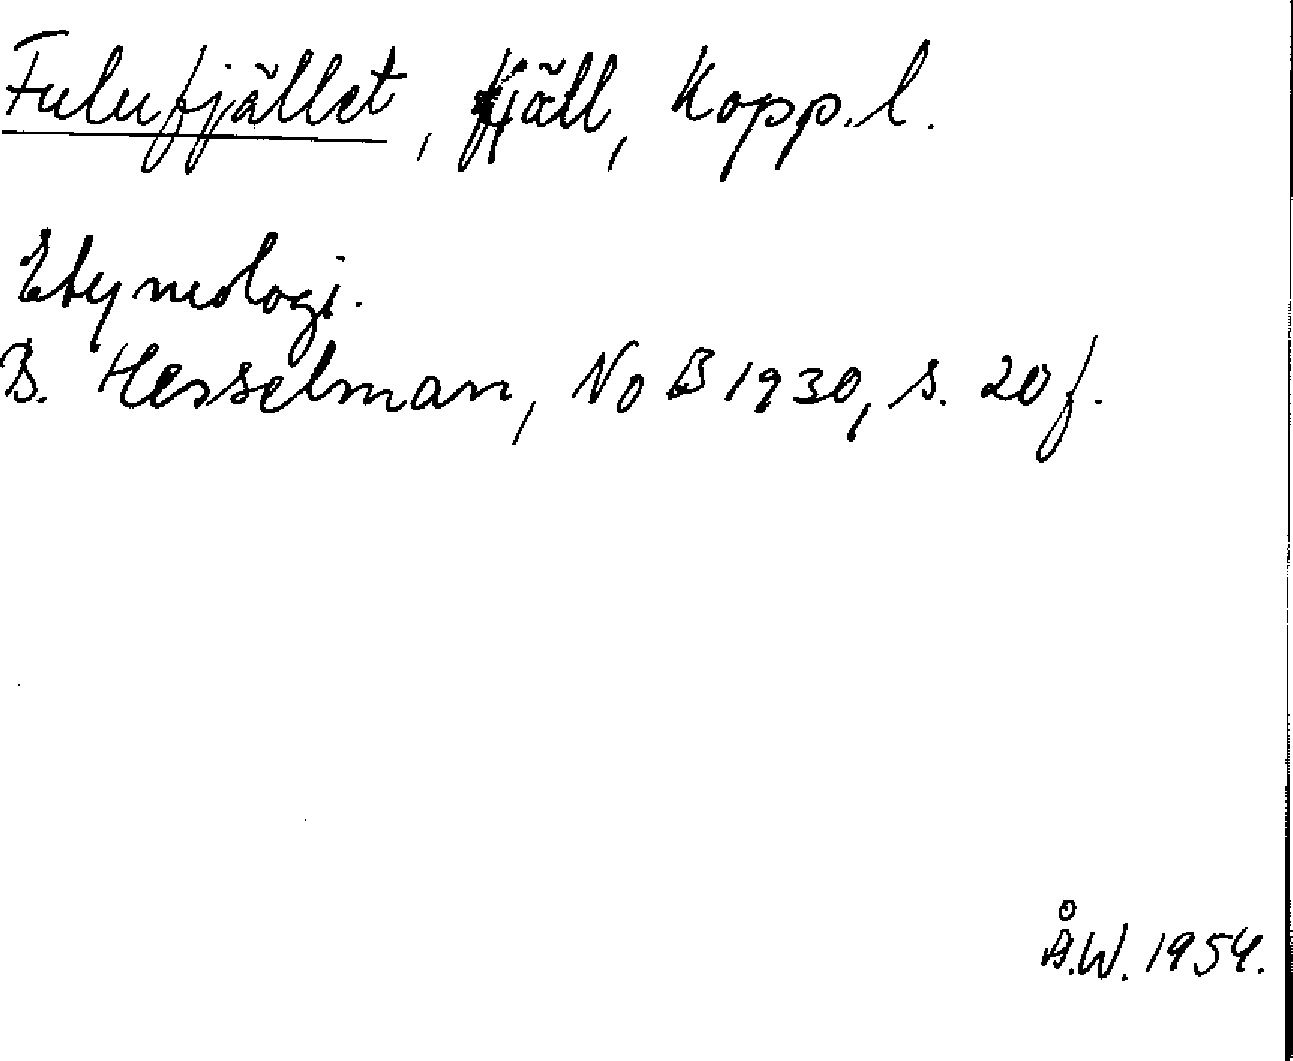 Fulufjället, fjäll, Kopp.l.
Etymologi.
B. Hesselman, NoB 1930, s. 20 f.
Å.W. 1954.